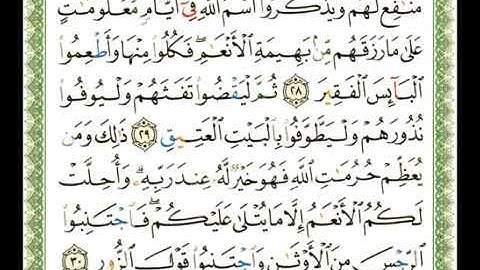 مَنَٰفِعَ لَهُمْ وَيَذْكُرُوا۟ ٱسْمَ ٱللَّهِ فِىٓ أَيَّامٍ مَّعْلُومَٰتٍ
عَلَىٰ مَا رَزَقَهُم مِّنۢ بَهِيمَةِ ٱلْأَنْعَٰمِ ۖ فَكُلُوا۟ مِنْهَا وَأَطْعِمُوا۟
ٱلْبَآئِسَ ٱلْفَقِيرَ ٢٨ ثُمَّ لْيَقْضُوا۟ تَفَثَهُمْ وَلْيُوفُوا۟
نُذُورَهُمْ وَلْيَطَّوَّفُوا۟ بِٱلْبَيْتِ ٱلْعَتِيقِ ٢٩ ذَٰلِكَ وَمَن
يُعَظِّمْ حُرُمَٰتِ ٱللَّهِ فَهُوَ خَيْرٌ لَّهُۥ عِندَ رَبِّهِۦ ۗ وَأُحِلَّتْ
لَكُمُ ٱلْأَنْعَٰمُ إِلَّا مَا يُتْلَىٰ عَلَيْكُمْ ۖ فَٱجْتَنِبُوا۟
ٱلرِّجْسَ مِنَ ٱلْأَوْثَٰنِ وَٱجْتَنِبُوا۟ قَوْلَ ٱلزُّورِ ٣٠